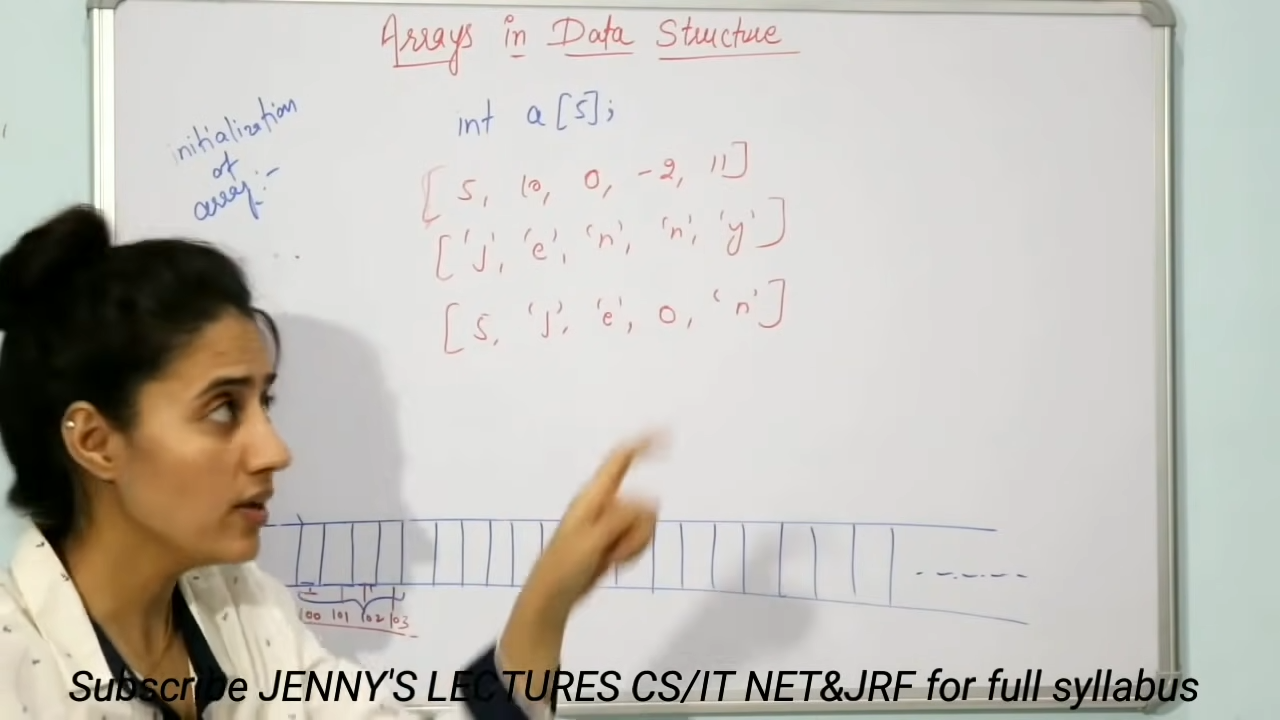 Arrays in Data Structure
initialization
of
array:-
int a[5];
[5, 10, 0, -2, 11]
['j', 'e', 'n', 'n', 'y']
[5, 'j', 'e', 0, 'n']
100 101 102 103
Subscribe JENNY'S LECTURES CS/IT NET&JRF for full syllabus